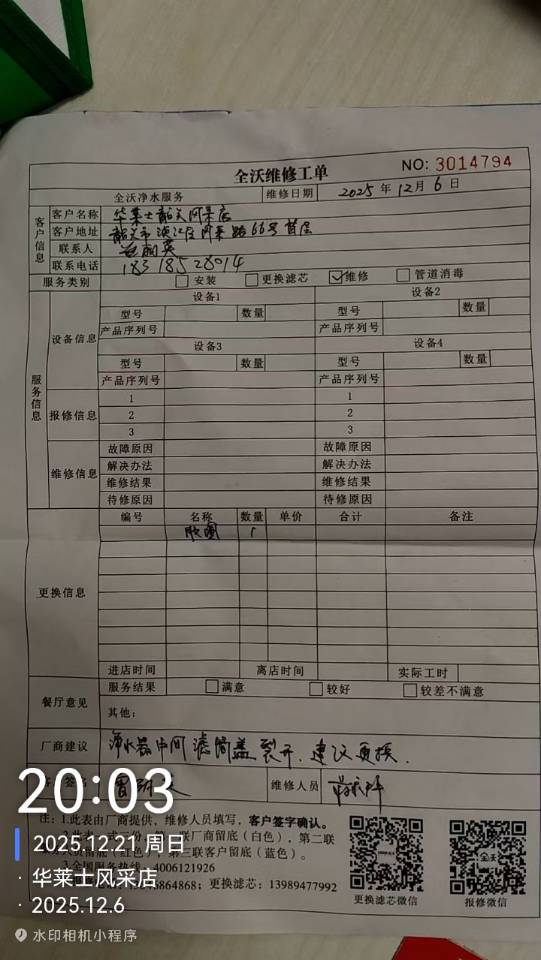 全沃维修工单
NO: 3014794
全沃净水服务 维修日期 2025年12月6日
客户信息
客户名称 华莱士韶关风采店
客户地址 韶关市浈江区风采路66号首层
联系人
联系电话 18318528014
服务类别 安装 更换滤芯 维修 管道消毒
服务信息
设备信息
设备1 设备2
型号 数量 型号 数量
产品序列号 产品序列号
设备3 设备4
型号 数量 型号 数量
产品序列号 产品序列号
报修信息
1 1
2 2
3 3
维修信息
故障原因 故障原因
解决办法 解决办法
维修结果 维修结果
待修原因 待修原因
更换信息
编号 名称 数量 单价 合计 备注
胶圈 1
进店时间 离店时间 实际工时
餐厅意见
服务结果 满意 较好 较差不满意
其他:
厂商建议 净水器中间滤筒盖裂开,建议更换.
维修人员
注:1.此表由厂商提供,维修人员填写,客户签字确认。
联厂商留底(白色),第二联
留底(红色),第三联客户留底(蓝色)。
4006121926
864868;更换滤芯:13989477992
更换滤芯微信 报修微信
20:03
2025.12.21 周日
· 华莱士风采店
· 2025.12.6
水印相机小程序